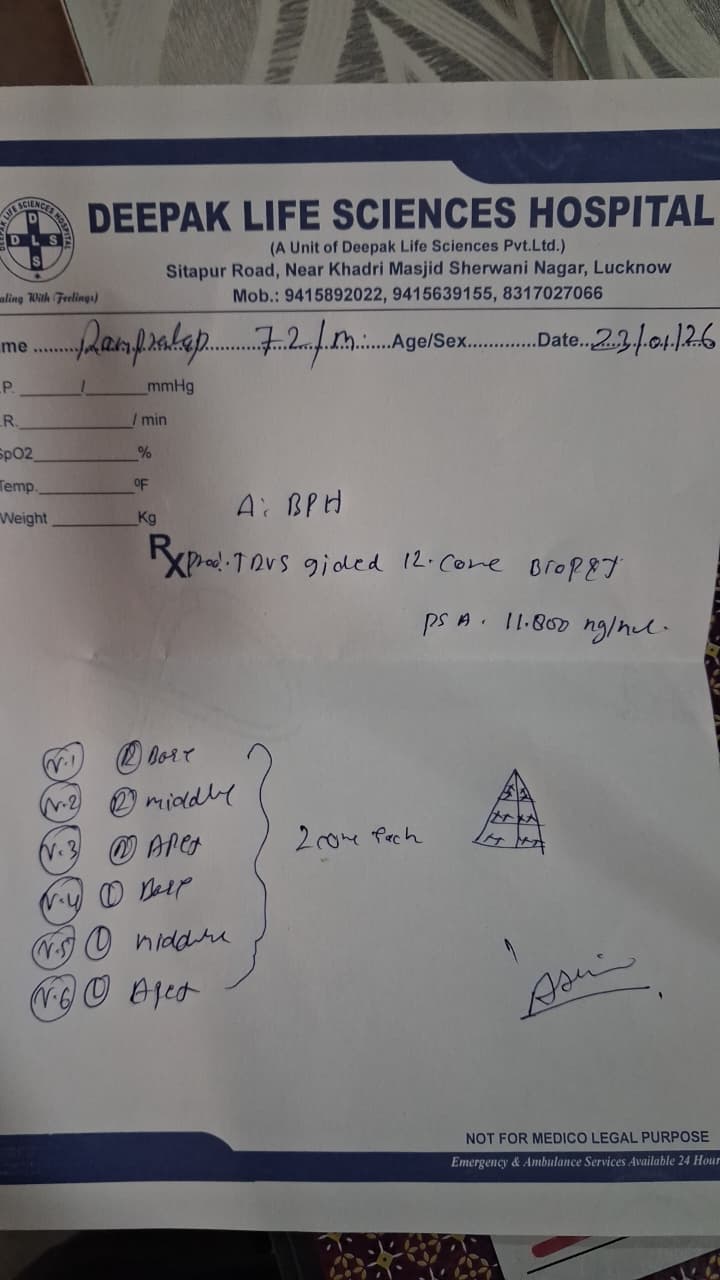 DEEPAK LIFE SCIENCES HOSPITAL
DEEPAK LIFE SCIENCES HOSPITAL
D
D L S
S
(A Unit of Deepak Life Sciences Pvt.Ltd.)
Sitapur Road, Near Khadri Masjid Sherwani Nagar, Lucknow
aling With Feelings)
Mob.: 9415892022, 9415639155, 8317027066
me ........Rampratap..........72/m......Age/Sex.............Date..23/01/26
P. ______/______mmHg
.R.____________/ min
SpO2____________%
Temp.____________ºF
Weight ____________Kg
A: BPH
Rx Proc. TRUS gided 12. Core Biopsy
PSA. 11.800 ng/ml.
N.1 R Base
N.2 R middle
N.3 R Apex
N.4 L Base
N.5 L middle
N.6 L Apex
2 core each
NOT FOR MEDICO LEGAL PURPOSE
Emergency & Ambulance Services Available 24 Hour